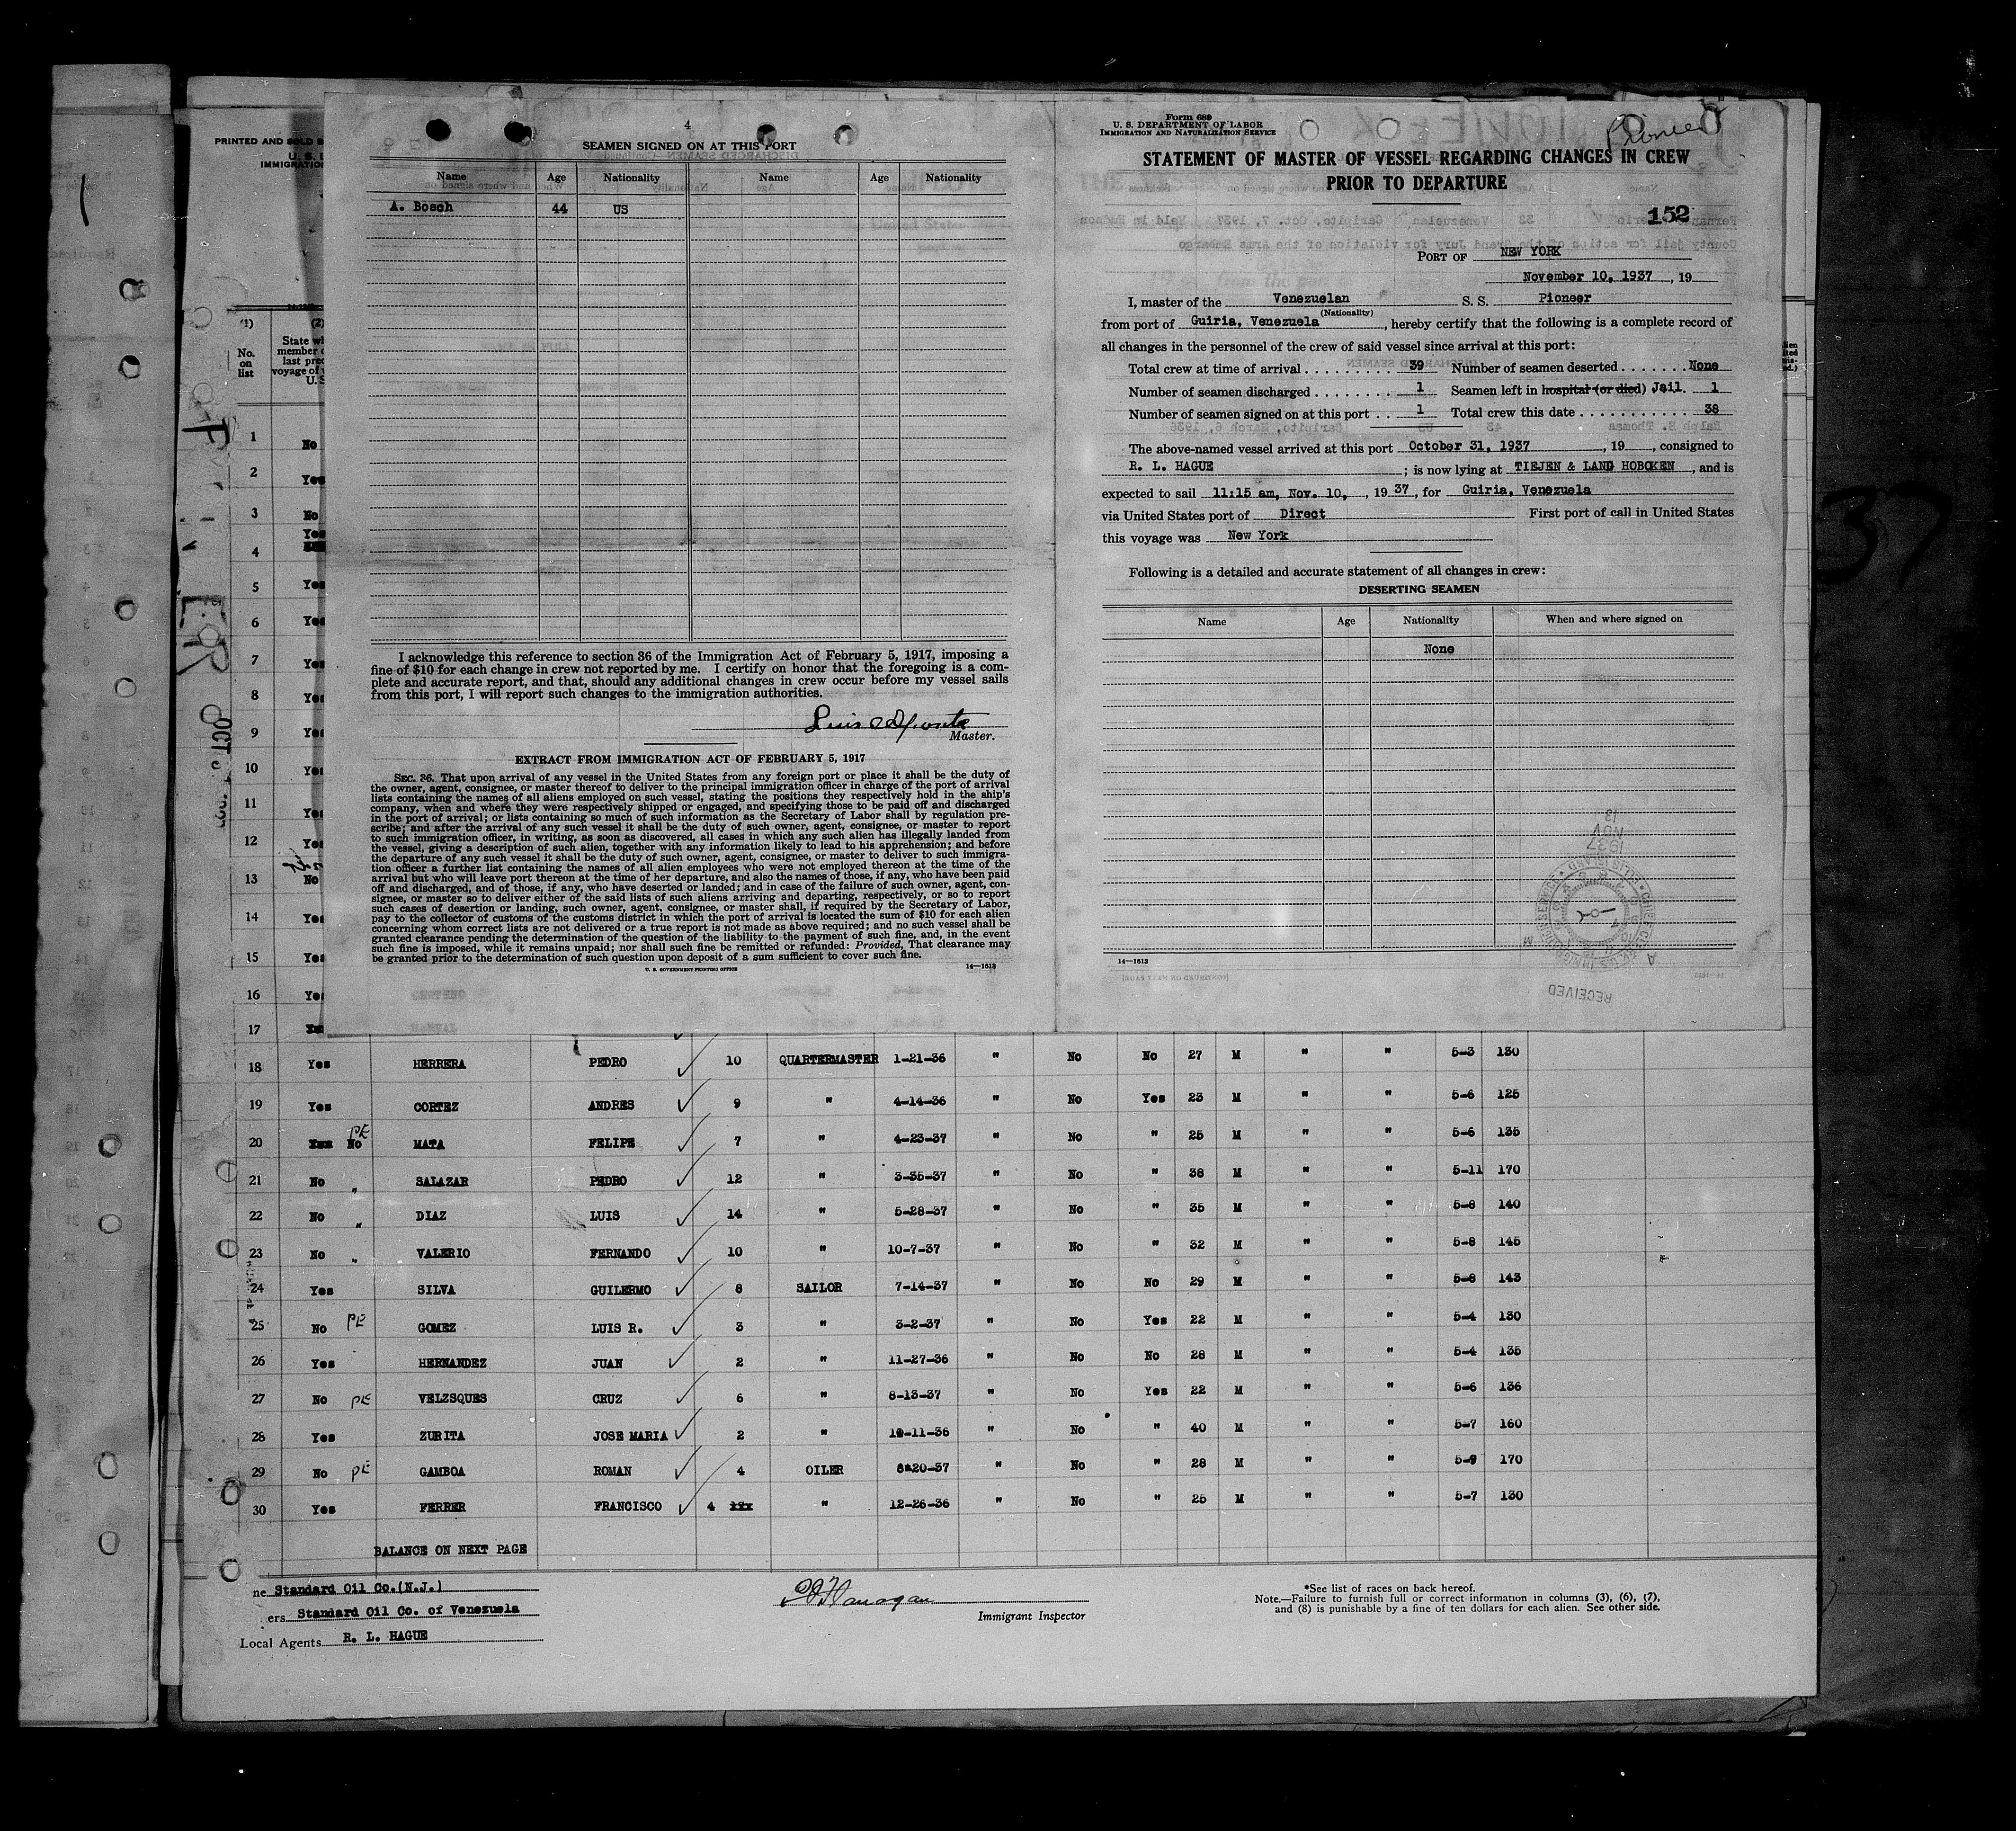 4
SEAMEN SIGNED ON AT THIS PORT
Name Age Nationality Name Age Nationality
A. Bosch 44 US
I acknowledge this reference to section 36 of the Immigration Act of February 5, 1917, imposing a
fine of $10 for each change in crew not reported by me. I certify on honor that the foregoing is a com-
plete and accurate report, and that, should any additional changes in crew occur before my vessel sails
from this port, I will report such changes to the immigration authorities.
Master.
EXTRACT FROM IMMIGRATION ACT OF FEBRUARY 5, 1917
SEC. 36. That upon arrival of any vessel in the United States from any foreign port or place it shall be the duty of
the owner, agent, consignee, or master thereof to deliver to the principal immigration officer in charge of the port of arrival
lists containing the names of all aliens employed on such vessel, stating the positions they respectively hold in the ship's
company, when and where they were respectively shipped or engaged, and specifying those to be paid off and discharged
in the port of arrival; or lists containing so much of such information as the Secretary of Labor shall by regulation pre-
scribe; and after the arrival of any such vessel it shall be the duty of such owner, agent, consignee, or master to report
to such immigration officer, in writing, as soon as discovered, all cases in which any such alien has illegally landed from
the vessel, giving a description of such alien, together with any information likely to lead to his apprehension; and before
the departure of any such vessel it shall be the duty of such owner, agent, consignee, or master to deliver to such immigra-
tion officer a further list containing the names of all alien employees who were not employed thereon at the time of the
arrival but who will leave port thereon at the time of her departure, and also the names of those, if any, who have been paid
off and discharged, and of those, if any, who have deserted or landed; and in case of the failure of such owner, agent, con-
signee, or master so to deliver either of the said lists of such aliens arriving and departing, respectively, or so to report
such cases of desertion or landing, such owner, agent, consignee, or master shall, if required by the Secretary of Labor,
pay to the collector of customs of the customs district in which the port of arrival is located the sum of $10 for each alien
concerning whom correct lists are not delivered or a true report is not made as above required; and no such vessel shall be
granted clearance pending the determination of the question of the liability to the payment of such fine, and, in the event
such fine is imposed, while it remains unpaid; nor shall such fine be remitted or refunded: Provided, That clearance may
be granted prior to the determination of such question upon deposit of a sum sufficient to cover such fine.
U. S. GOVERNMENT PRINTING OFFICE 14—1613
Form 689
U. S. DEPARTMENT OF LABOR
IMMIGRATION AND NATURALIZATION SERVICE
Pioneer
STATEMENT OF MASTER OF VESSEL REGARDING CHANGES IN CREW
PRIOR TO DEPARTURE
152
PORT OF NEW YORK
November 10, 1937, 19
I, master of the Venezuelan S. S. Pioneer
(Nationality)
from port of Guiria, Venezuela, hereby certify that the following is a complete record of
all changes in the personnel of the crew of said vessel since arrival at this port:
Total crew at time of arrival 39 Number of seamen deserted None
Number of seamen discharged 1 Seamen left in hospital (or died) Jail 1
Number of seamen signed on at this port 1 Total crew this date 38
The above-named vessel arrived at this port October 31, 1937, 19, consigned to
R. L. HAGUE; is now lying at TIEJEN & LAND HOBOKEN, and is
expected to sail 11:15 am, Nov. 10, , 1937, for Guiria, Venezuela
via United States port of Direct First port of call in United States
this voyage was New York
Following is a detailed and accurate statement of all changes in crew:
DESERTING SEAMEN
Name Age Nationality When and where signed on
None
14—1613
RECEIVED
PRINTED AND SOLD
IMMIGRATION
(1)
No. on list
1 No
2 Yes
3 No
4
5 Yes
6 Yes
7 Yes
8 Yes
9 Yes
10 Yes
11 Yes
12 Yes
13 No
14 Yes
15 Yes
16 Yes
17
18 Yes HERRERA PEDRO 10 QUARTERMASTER 1-21-36 " No No 27 M " " 5-3 130
19 Yes CORTEZ ANDRES 9 " 4-14-36 " No Yes 23 M " " 5-6 125
20 No PE MATA FELIPE 7 " 4-23-37 " No " 25 M " " 5-6 135
21 No " SALAZAR PEDRO 12 " 3-35-37 " No " 38 M " " 5-11 170
22 No " DIAZ LUIS 14 " 5-28-37 " No " 35 M " " 5-8 140
23 No " VALERIO FERNANDO 10 " 10-7-37 " No " 32 M " " 5-8 145
24 Yes SILVA GUILERMO 8 SAILOR 7-14-37 " No No 29 M " " 5-8 143
25 No PE GOMEZ LUIS R. 3 " 3-2-37 " No Yes 22 M " " 5-4 130
26 Yes HERNANDEZ JUAN 2 " 11-27-36 " No No 28 M " " 5-4 135
27 No PE VELZSQUES CRUZ 6 " 8-13-37 " No Yes 22 M " " 5-6 136
28 Yes ZURITA JOSE MARIA 2 " " No " 40 M " " 5-7 160
29 No PE GAMBOA ROMAN 4 OILER 8-20-37 " No " 28 M " " 5-9 170
30 Yes FERRER FRANCISCO 4 " 12-26-36 " No " 25 M " " 5-7 130
BALANCE ON NEXT PAGE
Standard Oil Co.(N.J.)
ers Standard Oil Co. of Venezuela
Local Agents R. L. HAGUE
Immigrant Inspector
*See list of races on back hereof.
Note.—Failure to furnish full or correct information in columns (3), (6), (7),
and (8) is punishable by a fine of ten dollars for each alien. See other side.
37